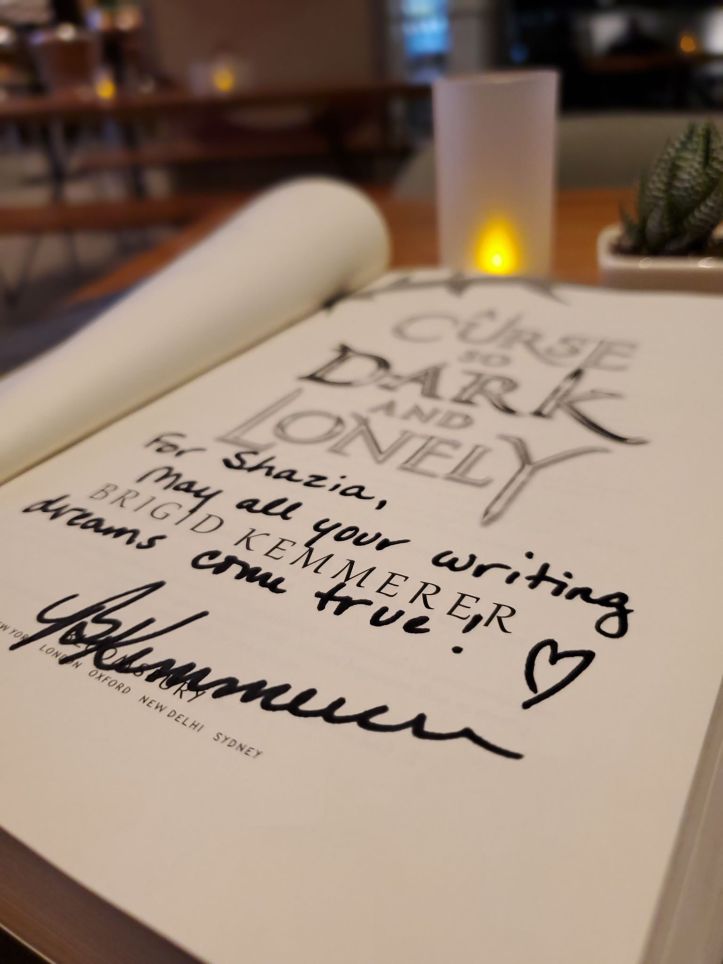 A
CURSE
SO
DARK
AND
LONELY
For Shazia,
May all your writing
BRIGID KEMMERER
dreams come true!
BKemmerer
BLOOMSBURY
NEW YORK LONDON OXFORD NEW DELHI SYDNEY